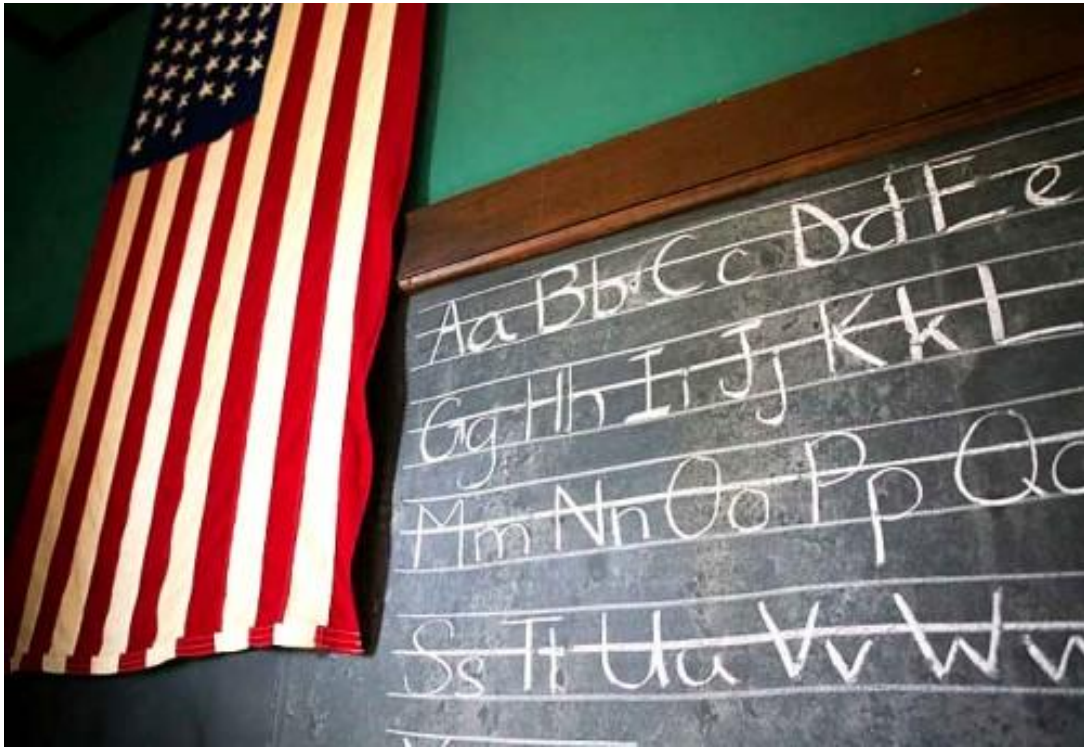 Aa Bb Cc Dd Ee
Gg Hh Ii Jj Kk L
Mm Nn Oo Pp Q
Ss Tt Uu Vv Ww